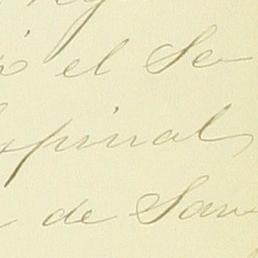 ó el Se
spinal
de San